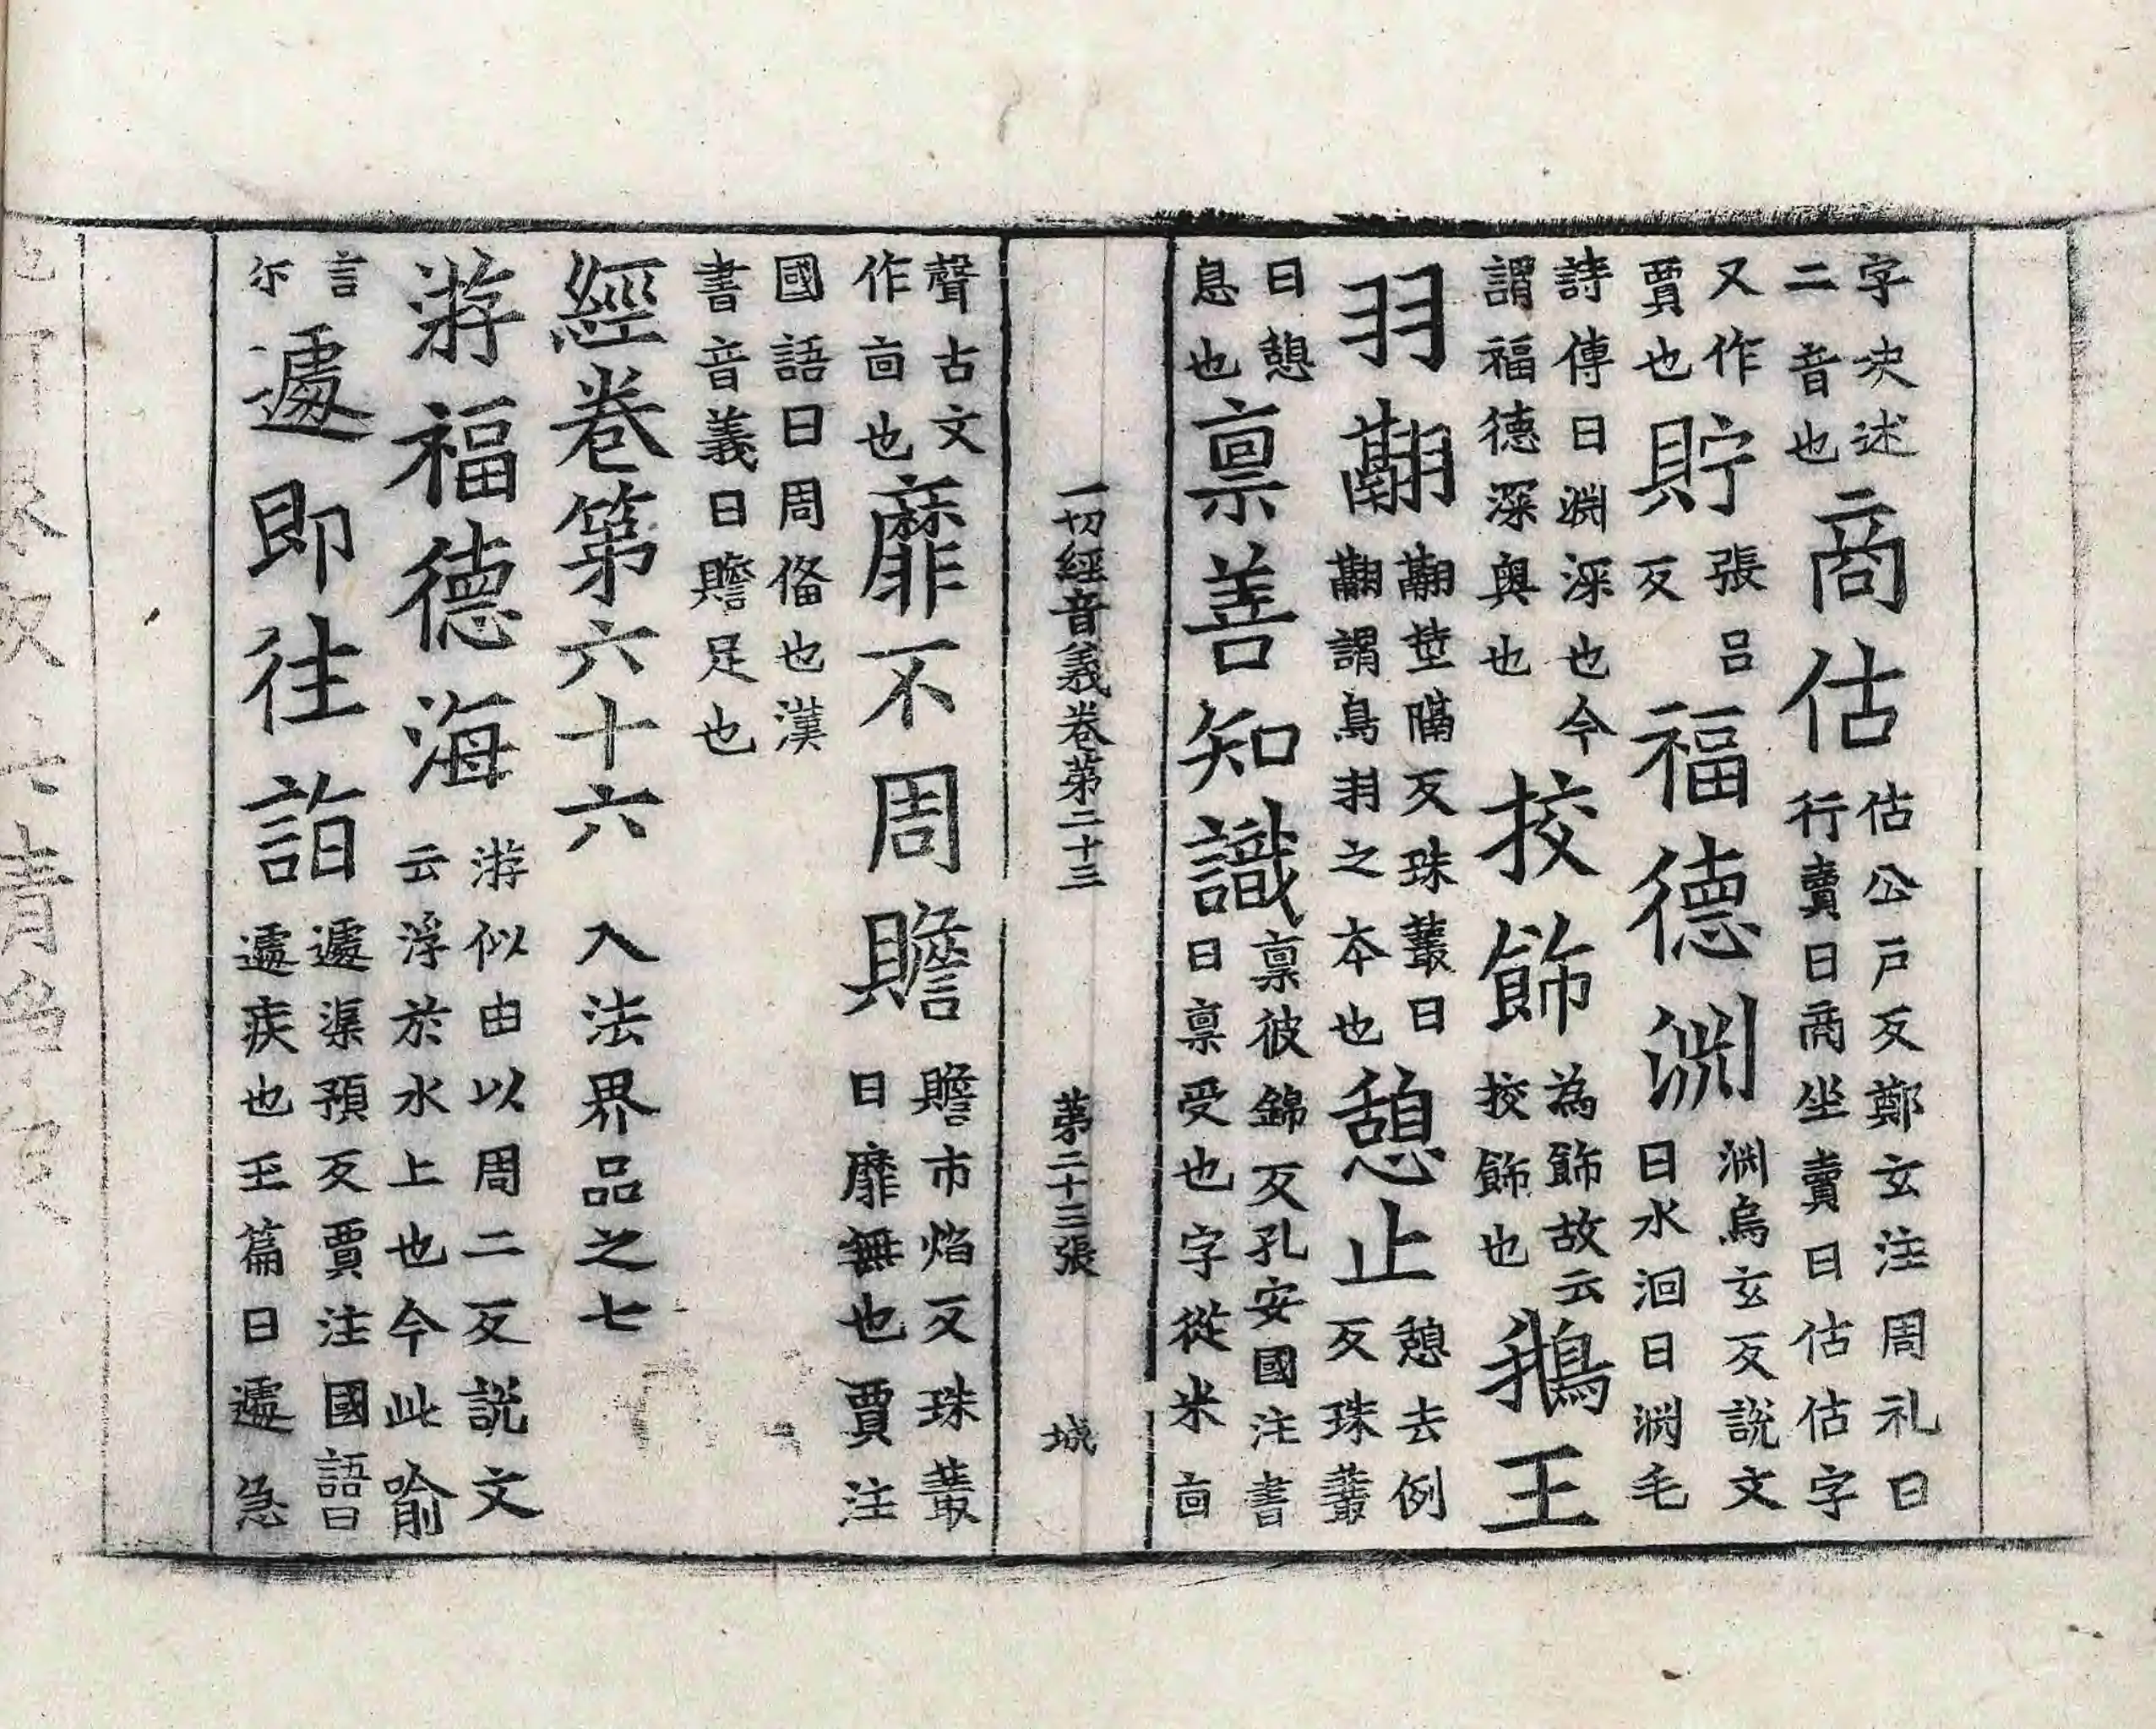 字夬述二音也商估估公戶反鄭玄注周礼曰行賣曰商坐賣曰估估字
又作賈也貯張呂反福德渊渊烏玄反說文曰水洄曰渊毛
詩傳曰渊深也今謂福德深奧也挍飾為飾故云挍飾也鵝王
羽翮翮莖隔反珠叢曰翮謂鳥羽之本也憩止憩去例反珠叢
曰憩息也禀善知識禀彼錦反孔安國注書曰禀受也字從米㐭
一切經音義卷第二十三 第二十三張 城
聲古文作㐭也靡不周贍贍市焰反珠叢曰靡無也賈注
國語曰周俻也漢書音義曰贍足也
經卷第六十六 入法界品之七
游福德海游似由以周二反說文云浮於水上也今此喻
言尓遽即往詣遽渠預反賈注國語曰遽疾也玉篇曰遽急